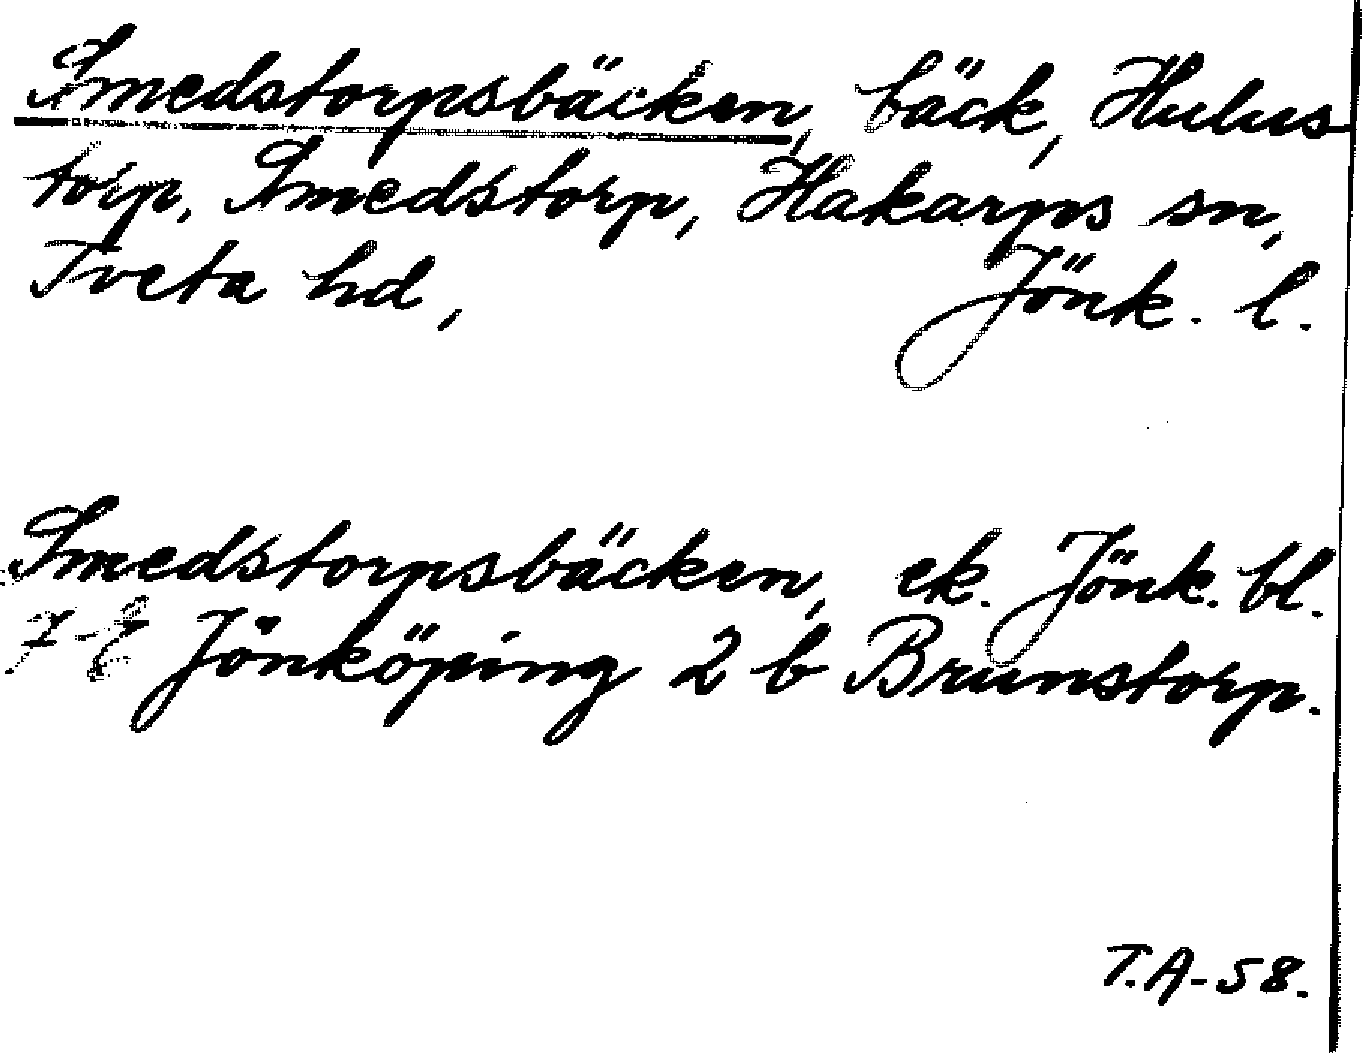 Smedstorpsbäcken, bäck, Hulus
torp, Smedstorp, Hakarps sn,
Tveta hd, Jönk. l.
Smedstorpsbäcken, ek. Jönk. bl.
7 E Jönköping 2 b Brunstorp.
T.A-58.